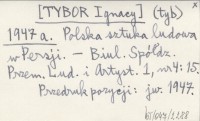 [TYBOR Ignacy] (tyb) x
1947 a. Polska sztuka ludowa
w Persji. — Biul. Spółdz.
Przem. Lud. i Artyst. 1, nr 4: 15.
Przedruk pozycji: jw. 1947.